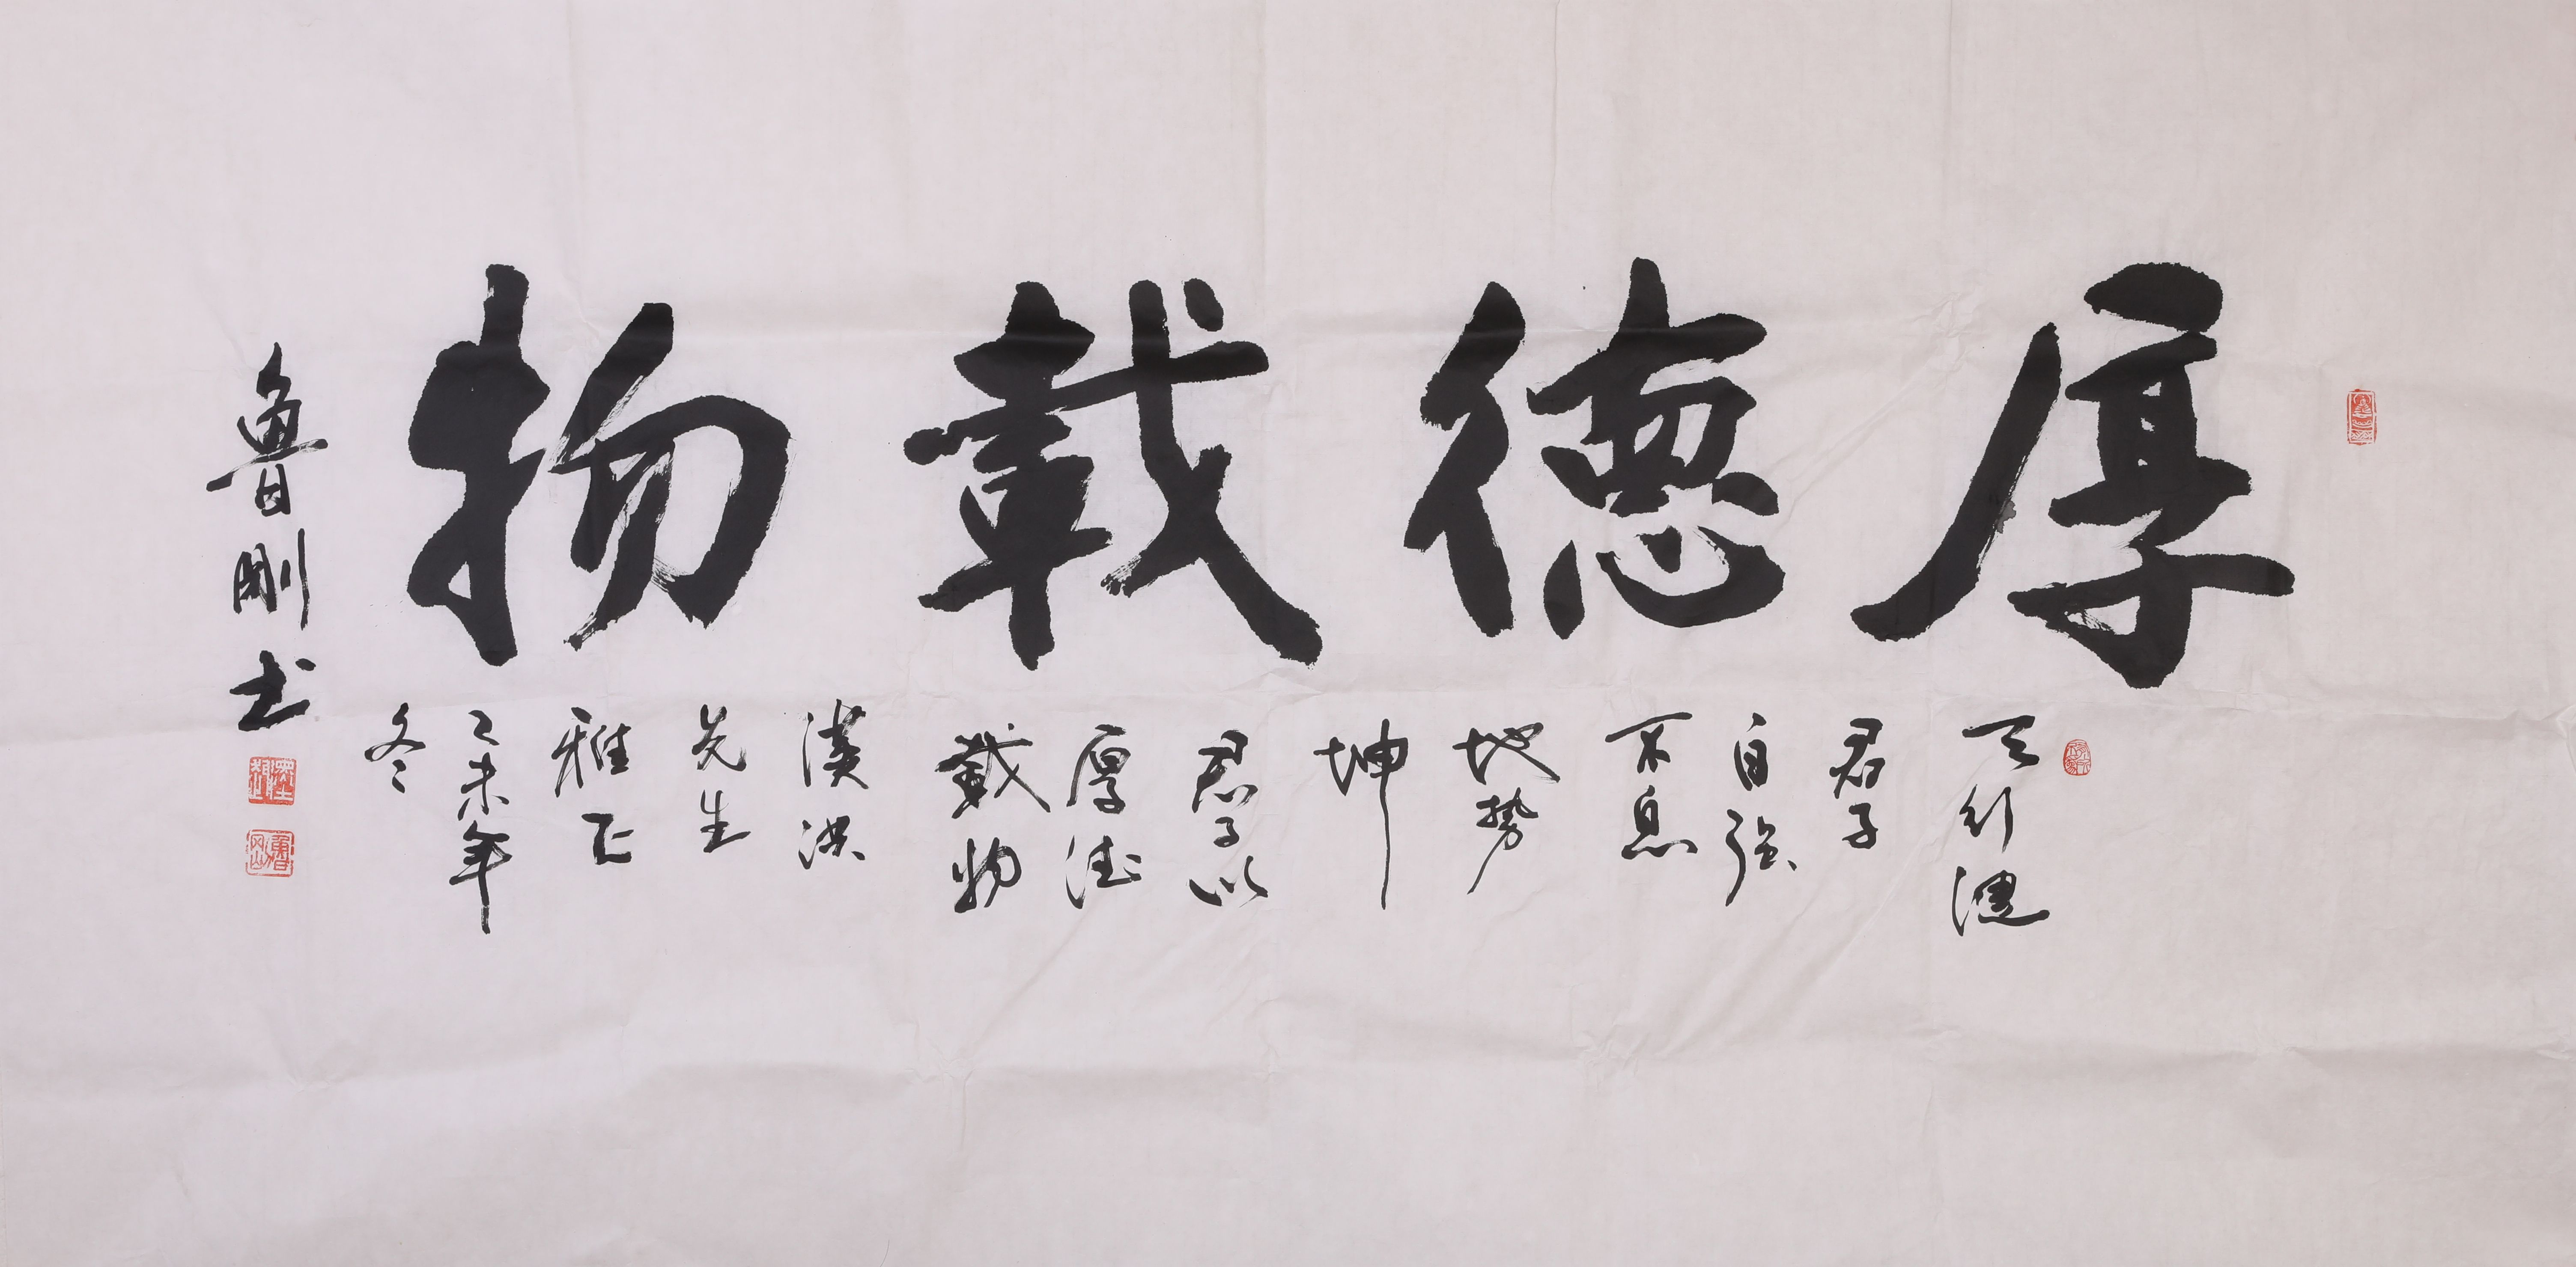 厚德載物
天行健
君子
自強
不息
地勢
坤
君子以
厚德
載物
漢洪
先生
雅正
乙未年
冬
魯剛书
魯剛